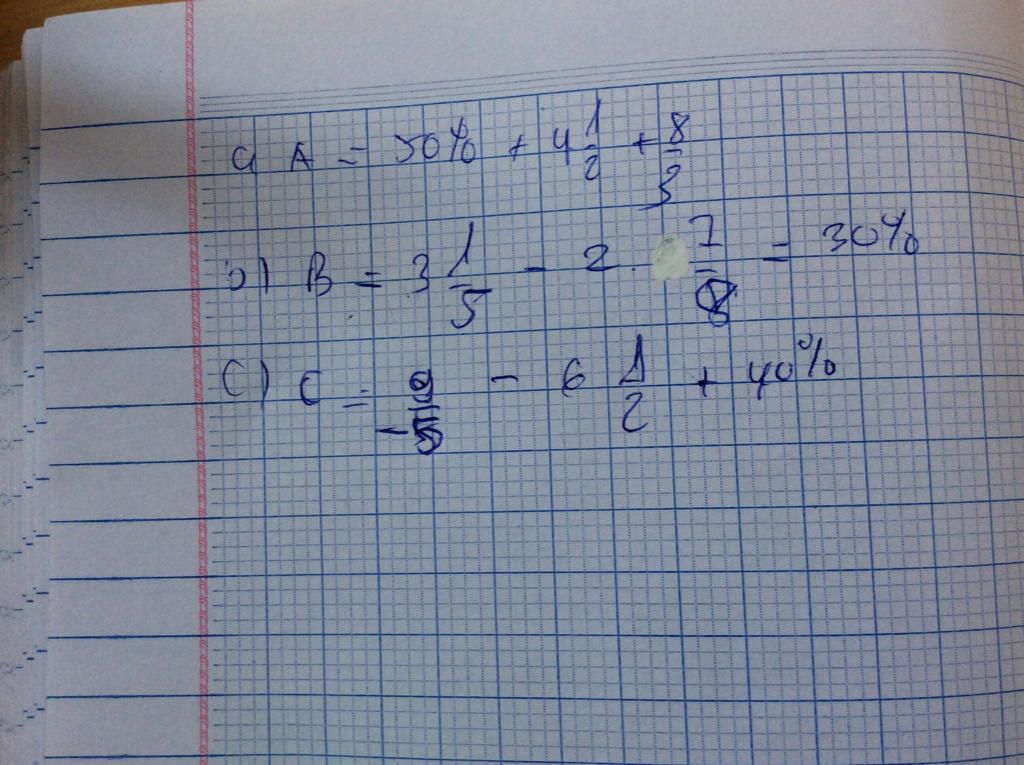 a) A = 50% + 4 1/2 + 8/5
b) B = 3 1/5 - 2 . 7/8 = 30%
C) C = - 6 1/2 + 40%